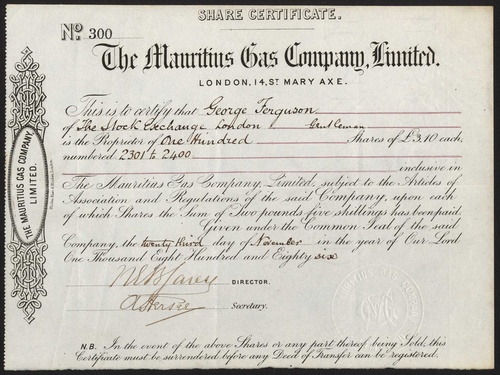 SHARE CERTIFICATE.
No. 300
The Mauritius Gas Company, Limited.
LONDON, 14, ST MARY AXE.
This is to certify that George Ferguson
of The Stock Exchange London Gentleman
is the Proprietor of One Hundred Shares of £3.10 each,
numbered 2301 to 2400
inclusive in
The Mauritius Gas Company, Limited, subject to the Articles of
Association and Regulations of the said Company, upon each
of which Shares the Sum of Two pounds five shillings has been paid.
Given under the Common Seal of the said
Company, the twenty third day of November in the year of Our Lord
One Thousand Eight Hundred and Eighty six
DIRECTOR.
Secretary.
N.B. In the event of the above Shares or any part thereof being Sold, this
Certificate must be surrendered before any Deed of Transfer can be registered.
THE MAURITIUS GAS COMPANY,
LIMITED.